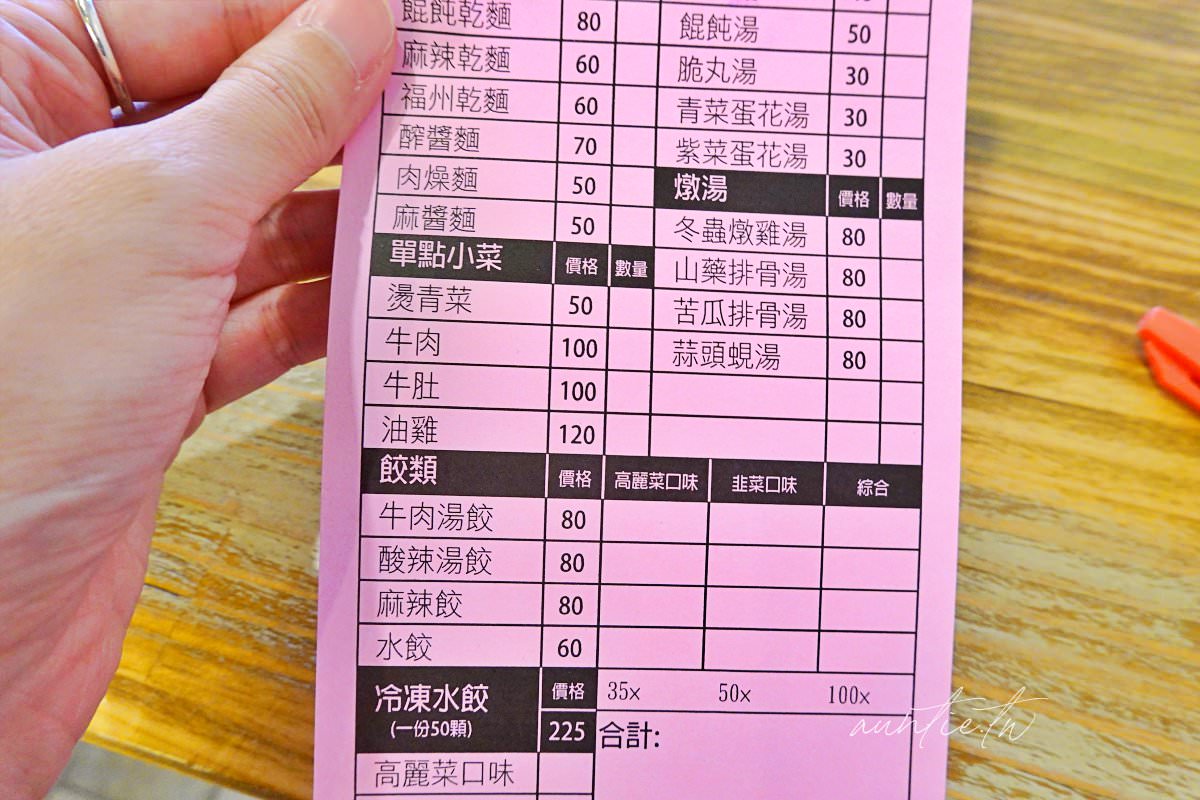 餛飩乾麵 80
麻辣乾麵 60
福州乾麵 60
酢醬麵 70
肉燥麵 50
麻醬麵 50
單點小菜 價格 數量
燙青菜 50
牛肉 100
牛肚 100
油雞 120
餛飩湯 50
脆丸湯 30
青菜蛋花湯 30
紫菜蛋花湯 30
燉湯 價格 數量
冬蟲燉雞湯 80
山藥排骨湯 80
苦瓜排骨湯 80
蒜頭蜆湯 80
餃類 價格 高麗菜口味 韭菜口味 綜合
牛肉湯餃 80
酸辣湯餃 80
麻辣餃 80
水餃 60
冷凍水餃 價格
(一份50顆) 225
高麗菜口味
35x 50x 100x
合計:
auntie.tw